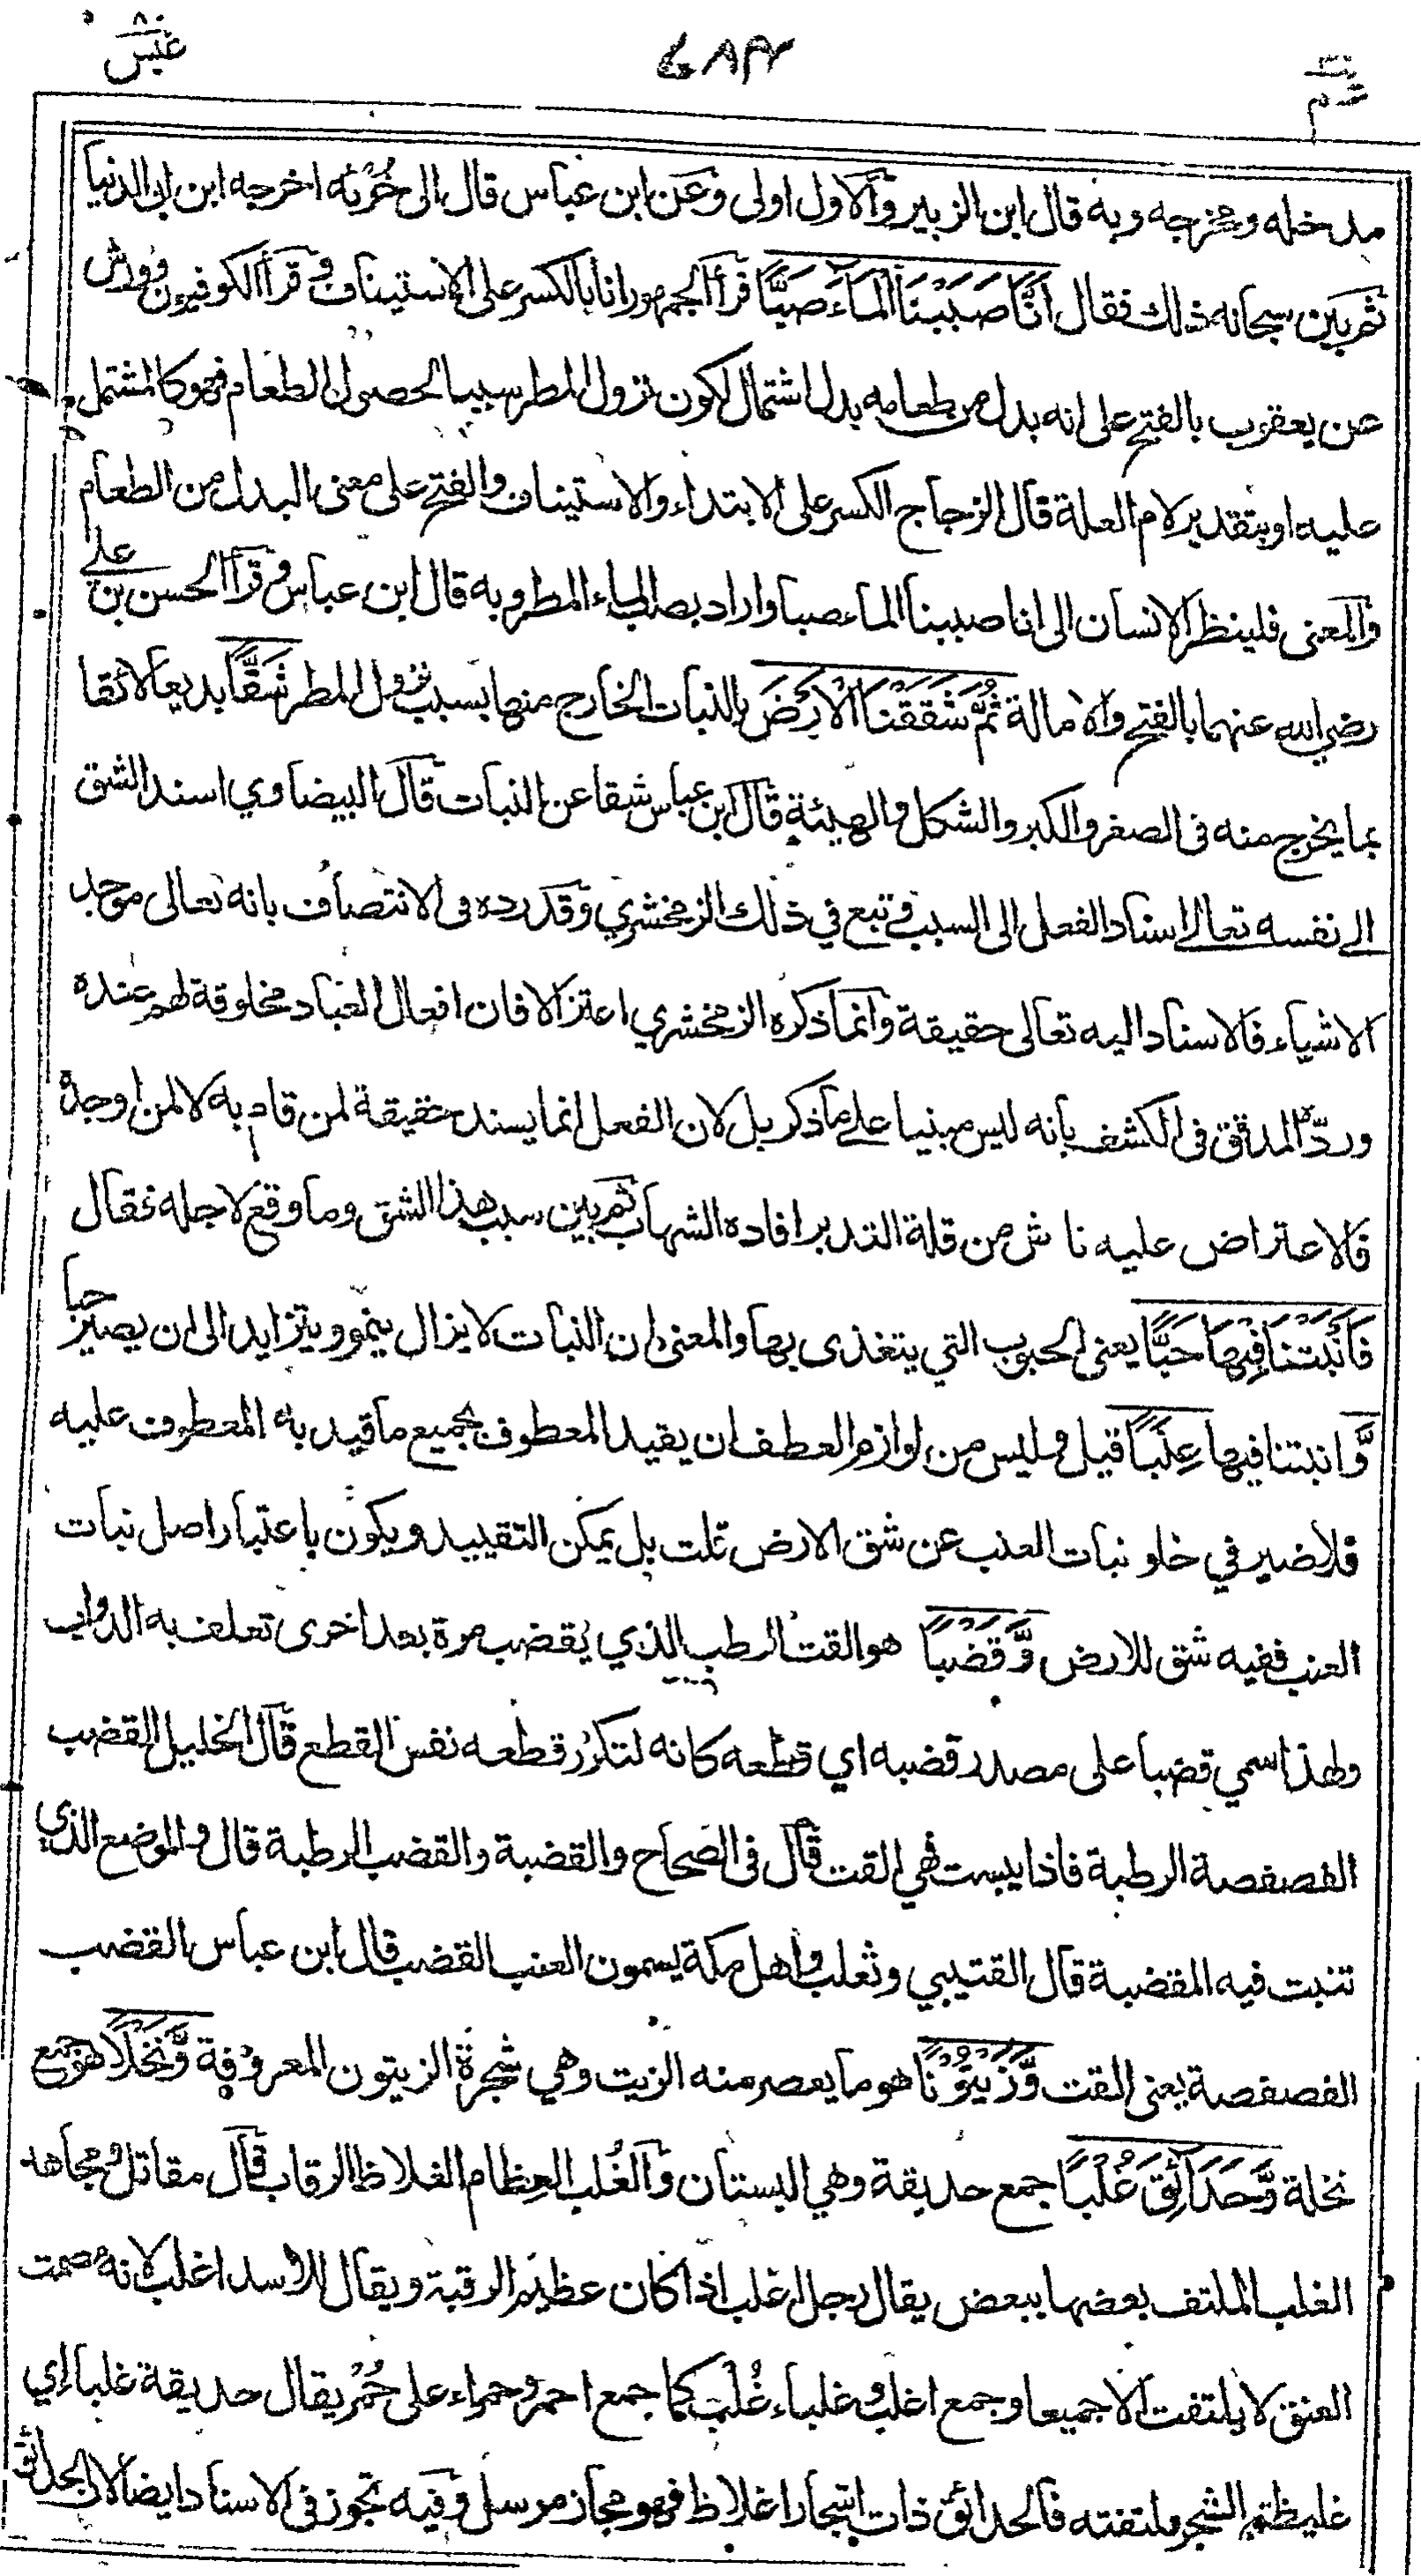 عبس ٨٠
مدخله ومخرجه وبه قال ابن الزبير والاول اولى وعن ابن عباس قال الى خُرْئه اخرجه ابن ابي الدنيا
ثم بين سبحانه ذلك فقال اَنَّا صَبَبْنَا الْمَاءَ صَبًّا قرأ الجمهور انا بالكسر على الاستيناف وقرأ الكوفيون ورويس
عن يعقوب بالفتح على انه بدل من طعامه بدل اشتمال لكون نزول المطر سببا لحصول الطعام فهو كالمشتمل
عليه او بتقدير لام العلة قال الزجاج الكسر على الابتداء والاستيناف والفتح على معنى البدل من الطعام
والمعنى فلينظر الانسان الى انا صببنا الماء صبا واراد بصب الماء المطر وبه قال ابن عباس وقرأ الحسن بن علي
رضي الله عنهما بالفتح والامالة ثُمَّ شَقَقْنَا الْاَرْضَ بالنبات الخارج منها بسبب نزول المطر شَقًّا بديعا لائقا
بما يخرج منه فى الصغر والكبر والشكل والهيئة قال ابن عباس شقا عن النبات قال البيضاوي اسند الشق
الى نفسه تعالى اسناد الفعل الى السبب وتبع في ذلك الزمخشري وقد رده فى الانتصاف بانه تعالى موجد
الاشياء فالاسناد اليه تعالى حقيقة وانما ذكره الزمخشري اعتزالا فان افعال العباد مخلوقة لهم عنده
وردّه المدقق فى الكشف بانه ليس مبنيا على ما ذكر بل لان الفعل انما يسند حقيقة لمن قام به لا لمن اوجده
فالاعتراض عليه ناش من قلة التدبر افاده الشهاب ثم بين سبب هذا الشق وما وقع لاجله فقال
فَاَنْبَتْنَا فِيْهَا حَبًّا يعنى الحبوب التي يتغذى بها والمعنى ان النبات لا يزال ينمو ويتزايد الى ان يصير حبا
وَّانبتنا فيها عِنَبًا قيل وليس من لوازم العطف ان يقيد المعطوف بجميع ما قيد به المعطوف عليه
فلا ضير في خلو نبات العنب عن شق الارض قلت بل يمكن التقييد ويكون باعتبار اصل نبات
العنب ففيه شق للارض وَّقَضْبًا هو القت الرطب الذي يُقضب مرة بعد اخرى تعلف به الدواب
ولهذا سمي قضبا على مصدر قضبه اي قطعه كانه لتكرر قطعه نفس القطع قال الخليل القضب
الفصفصة الرطبة فاذا يبست فهي القت قال فى الصحاح والقضبة والقضب الرطبة قال والموضع الذي
تنبت فيه المقضبة قال القتيبي وثعلب واهل مكة يسمون العنب القضب قال ابن عباس القضب
الفصفصة يعنى القت وَّزَيْتُوْنًا هو ما يعصر منه الزيت وهي شجرة الزيتون المعروفة وَّنَخْلًا هو جمع
نخلة وَّحَدَائِقَ غُلْبًا جمع حديقة وهي البستان والغُلب العِظام الغلاظ الرقاب قال مقاتل ومجاهد
الغلب الملتف بعضها ببعض يقال رجل اغلب اذا كان عظيم الرقبة ويقال للاسد اغلب لانه مصمت
العنق لا يلتفت الا جميعا وجمع اغلب وغلباء غُلْب كما جمع احمر وحمراء على حُمْر يقال حديقة غلباء اي
غليظة الشجر ملتفته فالحدائق ذات اشجار غلاظ فهو مجاز مرسل وفيه تجوز فى الاسناد ايضا لان الحدائق